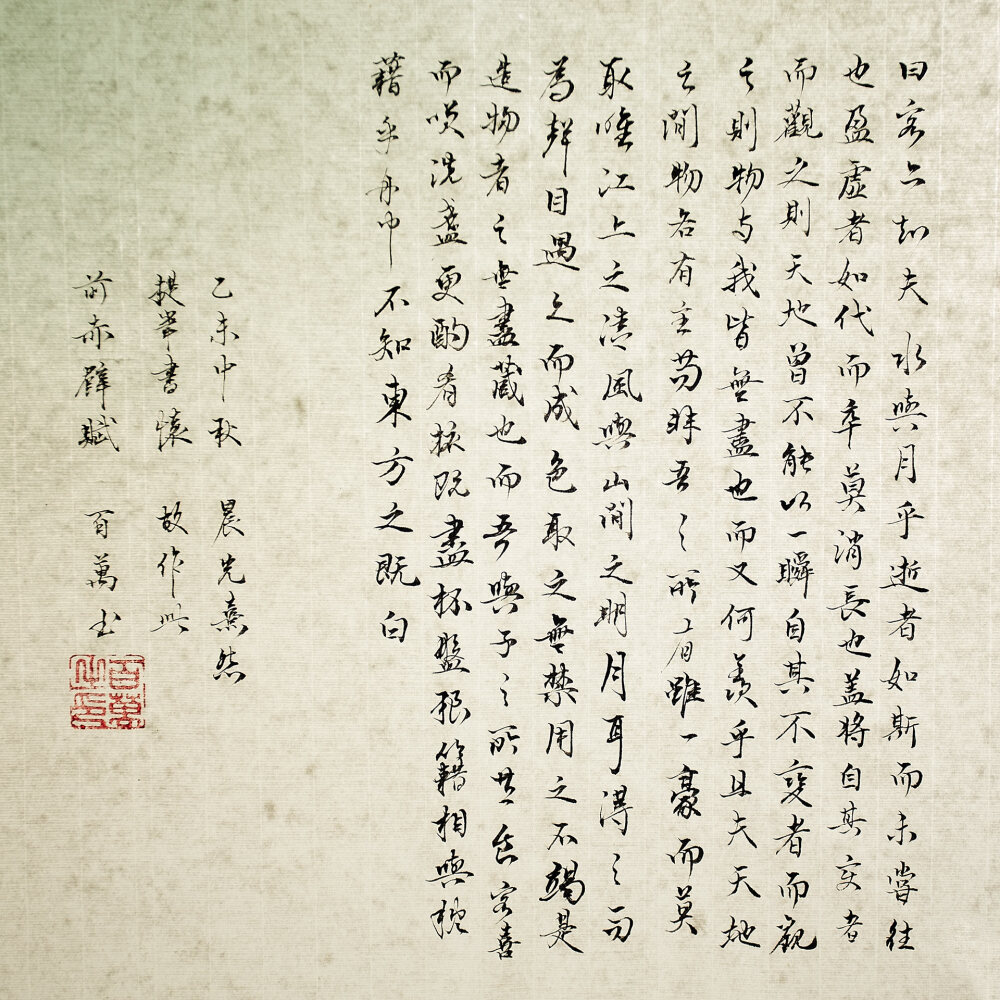 曰客亦知夫水與月乎逝者如斯而未嘗往
也盈虛者如代而卒莫消長也盖將自其变者
而觀之則天地曾不能以一瞬自其不变者而觀
之則物与我皆無盡也而又何羨乎且夫天地
之間物各有主苟非吾之所有雖一豪而莫
取唯江上之清風與山間之明月耳得之而
為聲目遇之而成色取之無禁用之不竭是
造物者之無盡藏也而吾與子之所共食客喜
而笑洗盞更酌肴核既盡杯盤狼籍相與枕
藉乎舟中不知東方之既白
乙未中秋 晨光熹然
提筆書懷 故作此
前赤壁賦 百萬书
百萬之印